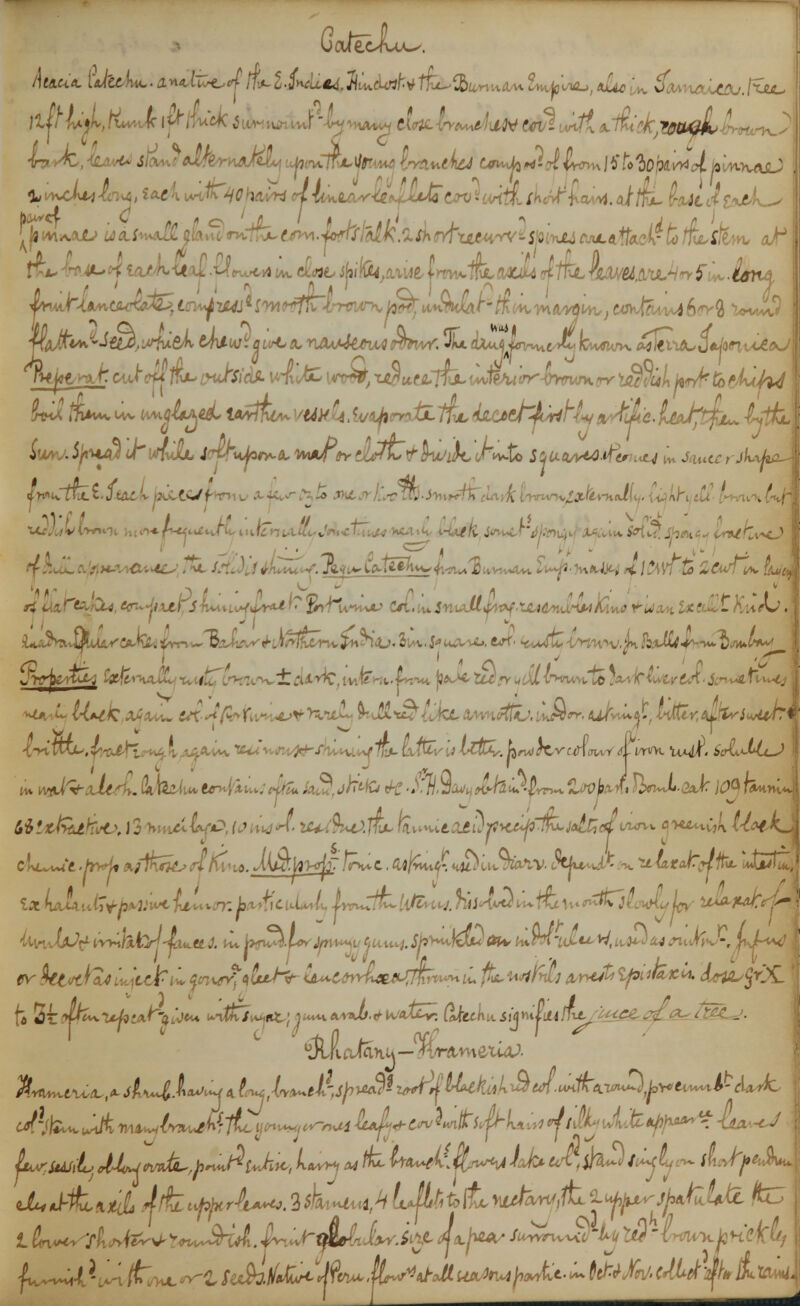 Catechu.
Acacia Catechu. a native of the E. Indies, Hindost. & the Burman Empire, also in Jamaica. Tree
12 ft high, trunk 1 ft thick surmount.d by many close branches cov.d with a thick, rough brown
bark, leaves stand alternately upon the young branches comp.d of from 15 to 30 pairs of pinnae
2 inches long, each with 40 pairs of linear leaflets cov.d with short hairs. at the base of each
pair of
pinnae is a small gland on the com. footstalk. 2 short recurv.d spines are attach.d to the stem at
the base of each leaf. Flowers in close spikes, arise from the axils of the leaves, are 4 or 5 in. long
fruit lanceolate, compress.d smooth brown pod, undulat.d thin margin, contains 6 or 8 round
flatten.d seed, which chew.d give a nauseous odour. The drug was formerly known as Terra Japonica
Preperat. cut off the outside white wood, reduce the interior brown or reddish part to chips
boil them in unglazed earthen vessels. Evaporate the decoct. first by artific. heat, then by the
Sun. Spread it while soft upon a mat or cloth & divide it into squares. Comes in saucer shape
from the E. I. each piece from a few oz to one or two lb. smooth dark brown externally. light yell. brown but
reddish brown more frequently internally, sometimes nearly black some.t spongy again solid. spongy fracture
of dull appearance, the solid is shining. Pegu Catechu from Burman Emp. masses of 1 cwt to 2 cwt in layers
of flat cakes, compact shining fract. Portwine col. in small frag. resembles Kino & is an excell.t kind.
Quadrangular cakes from Bahar & Northern India. 3 in. square. col. rusty brown. In Balls from Bombay
Properties Externally rusty brown ± dark, intern. from pale red or yell. brown to dark liver col. sometimes
nearly black, again col. of Portwine & rarely dull red like annotta. inodor. astring.t, bitter, afterw. sweet
brittle, fract. rough again resinous & shining the latter is better. powder colour of iron rust. soluble
in wat. & alcoh. Catechu contains often sand, sticks &c. Sir H. Davy obtain.d from 200 part. Bomb. Cat. 109 tannin
68 extractive, 13 mucilage, 10 insol. residue. The tannic acid precip. the salts of iron greenish black
chemic. prop. as those of Kino. Med. prop.s Tonic. astring.t used in Diarr. dependt. on relaxat. of the intestin,
exhalants, & passive hemorr. particularly from the Uterus. Dissolved in the mouth slowly for relaxat. of
uvula & irritat. of fauces. in powd. for spongy gums. sprinkled on indol.t ulcers, used as ointm.t. Infus.
or decoct. as inject. in gonor, gleet & leucorrhoea, thrown in the nostrils arrests Epistaxis. dose grX
to ʒss often repeat.d given with sugar, gum arab. & water. Catechu signifies the juice of a tree.
Rhatany — Krameria.
Krameria, a shrub. having a long, branch.d, spread.g root of blackish red col. with a round, procumb.t dark
col.d stem with many branch.s the younger ones leafy & cov.d with soft hairs of silky white appear.ce leaves
few, sessile, oblong ovate, point.d entire, hairy as the branch.s flowers lake col.d, stand singly on short pedun
cles at the axils of the upper leaves. 3 stamens, 4 leaflets to the nectary, the 2 upper spatulate the
2 lower shorter & roundish. fruit globular. size of a pea surround.d by red.h brown prickly,
furnish.d with one or 2 seeds. Native of Peru. flow.s at all seasons partic. in Oct. & Nov. collect.d after the rains.